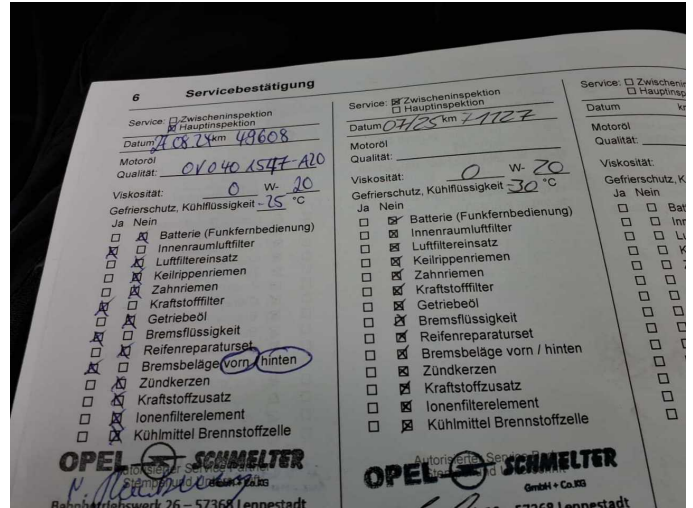 6 Servicebestätigung
Service: Zwischeninspektion
Hauptinspektion
Datum 21.08.24 km 49608
Motoröl
Qualität: OV0401547-A20
Viskosität: 0 W- 20
Gefrierschutz, Kühlflüssigkeit -25 °C
Ja Nein
Batterie (Funkfernbedienung)
Innenraumluftfilter
Luftfiltereinsatz
Keilrippenriemen
Zahnriemen
Kraftstofffilter
Getriebeöl
Bremsflüssigkeit
Reifenreparaturset
Bremsbeläge vorn / hinten
Zündkerzen
Kraftstoffzusatz
Ionenfilterelement
Kühlmittel Brennstoffzelle
OPEL SCHMELTER
Autorisierter Service Partner
GmbH + Co.KG
Bahnbetriebswerk 26 – 57368 Lennestadt
Service: Zwischeninspektion
Hauptinspektion
Datum 07/25 km 71127
Motoröl
Qualität:
Viskosität: 0 W- 20
Gefrierschutz, Kühlflüssigkeit -30 °C
Ja Nein
Batterie (Funkfernbedienung)
Innenraumluftfilter
Luftfiltereinsatz
Keilrippenriemen
Zahnriemen
Kraftstofffilter
Getriebeöl
Bremsflüssigkeit
Reifenreparaturset
Bremsbeläge vorn / hinten
Zündkerzen
Kraftstoffzusatz
Ionenfilterelement
Kühlmittel Brennstoffzelle
Autorisierter Service
OPEL SCHMELTER
GmbH + Co.KG
57368 Lennestadt
Service: Zwischenin
Hauptinsp
Datum
Motoröl
Qualität:
Viskosität:
Gefrierschutz, K
Ja Nein
Bat